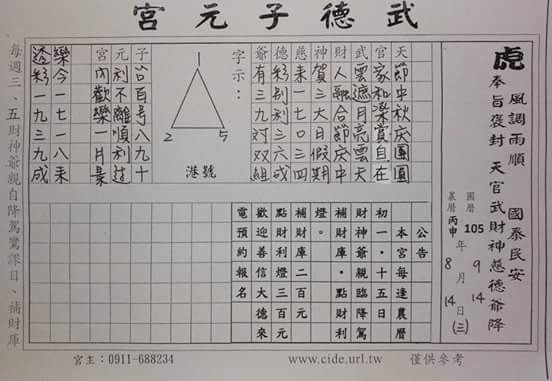 武德子元宮
風調雨順 國泰民安
虎
奉旨褒封 天官武財神慈德爺降
國曆 105年9月14日(三)
農曆 丙申 8月14日
天節中秋庆團圓
官家和賞自在
武雲遮月亮雲天
財人融合節庆中
神賀三大日假期
慈来一七0三四
德彩别利三六成
爺有三九对双組
字示：
1
2
5
港號
子谷百号八九十
元利不離順利过
宮内歡樂一片景
樂今一七一八来
透彩一九三九成
公告
本宮每逢農曆
初一·十五日
財神爺親臨降駕
補財庫·點財利
燈。
補財庫二百元
點財利燈三百元
歡迎善信大德來
電預約報名
每週三、五財神爺親自降駕鸞課目、補財庫
宮主：0911-688234
www.cide.url.tw
僅供參考